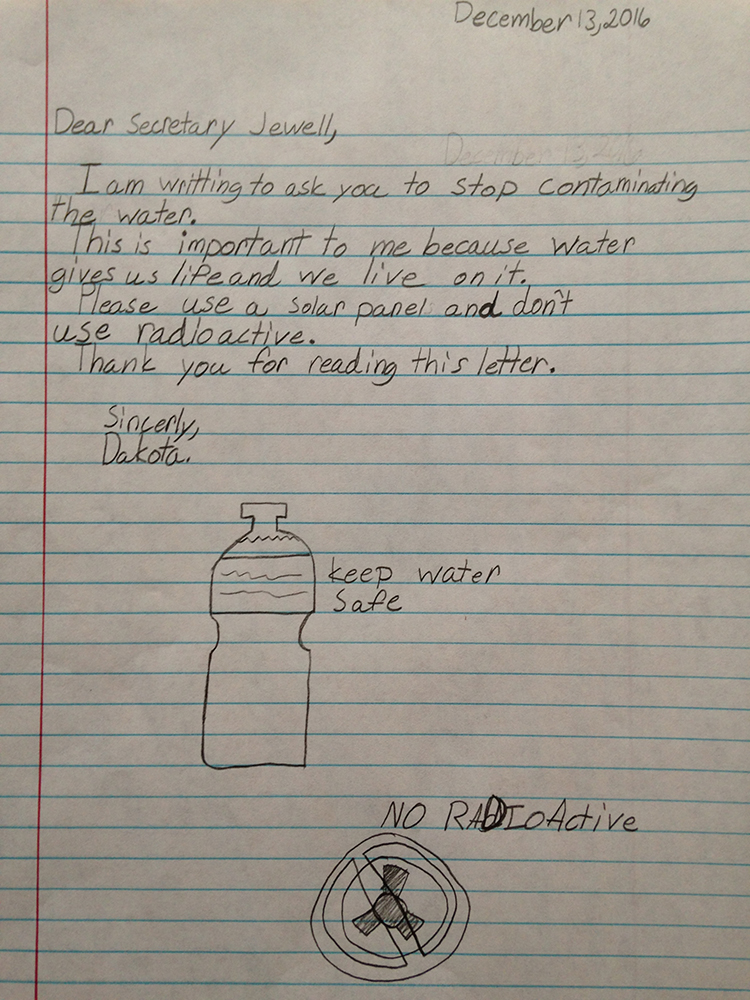 December 13, 2016
Dear Secretary Jewell,
December 13, 2016
I am writting to ask you to stop contaminating
the water.
This is important to me because water
gives us life and we live on it.
Please use a solar panel and don't
use radioactive.
Thank you for reading this letter.
Sincerly,
Dakota.
keep water
safe
NO RADIOActive